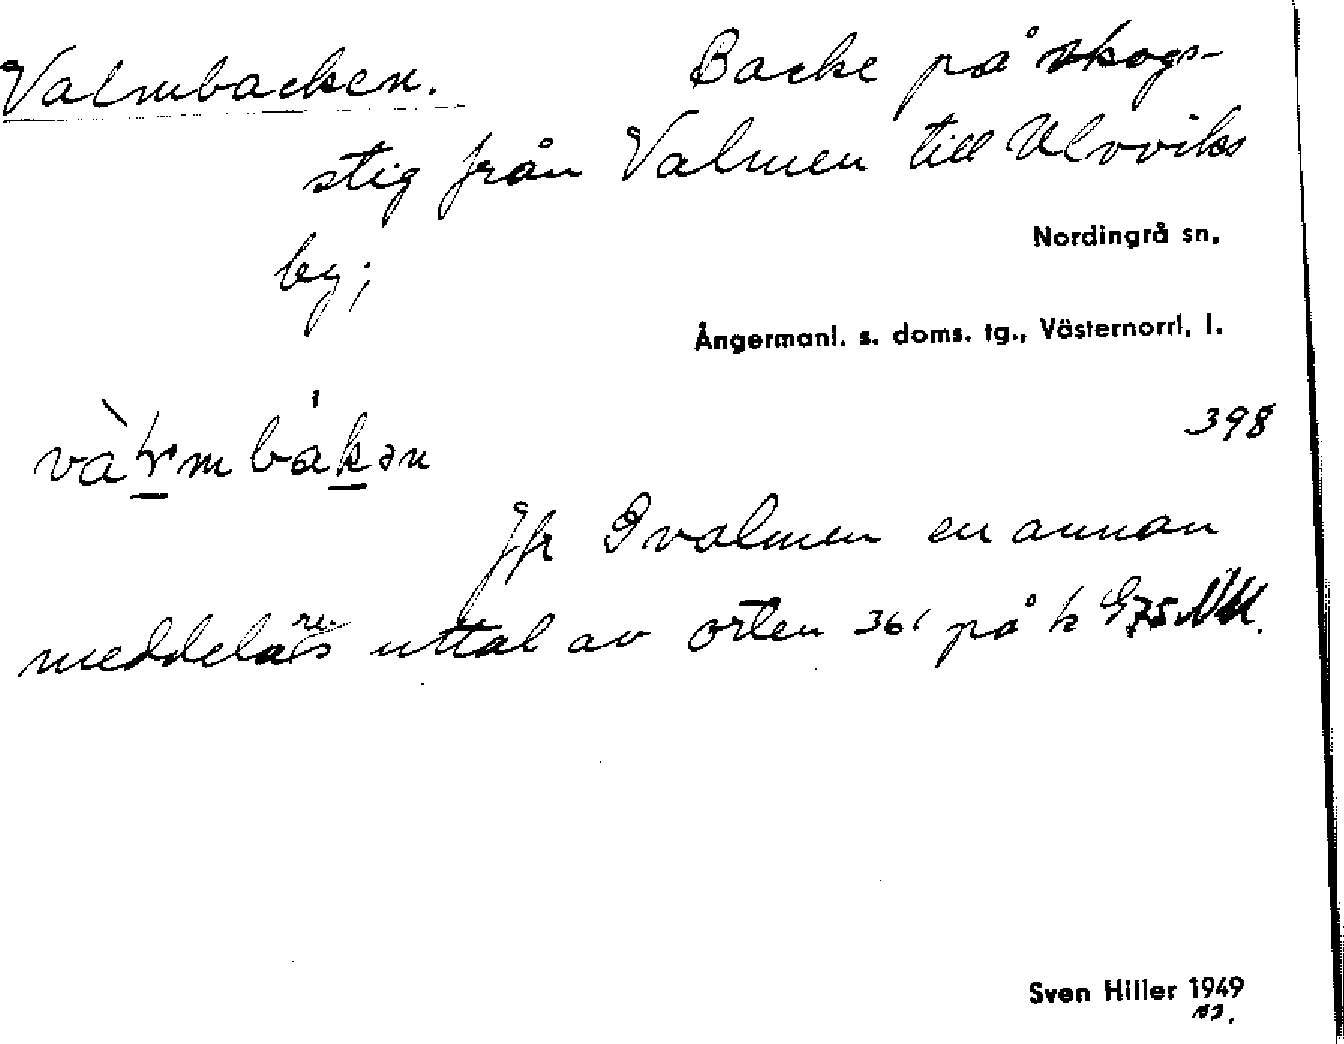 Valmbacken. Backe på skogs-
stig från Valmen till Ulvviks
by;
Nordingrå sn.
Ångermanl. s. doms. tg., Västernorrl. l.
398
Jfr Dvalmen en annan
meddelares uttal av orten 361 på k
Sven Hiller 1949